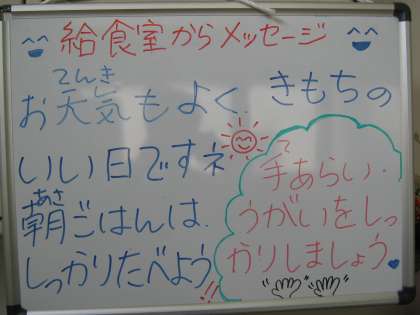 給食室からメッセージ
お天気もよく、きもちの
てんき
いい日ですネ
朝ごはんは、
あさ
しっかりたべよう!!
手あらい、
て
うがいをしっ
かりしましょう